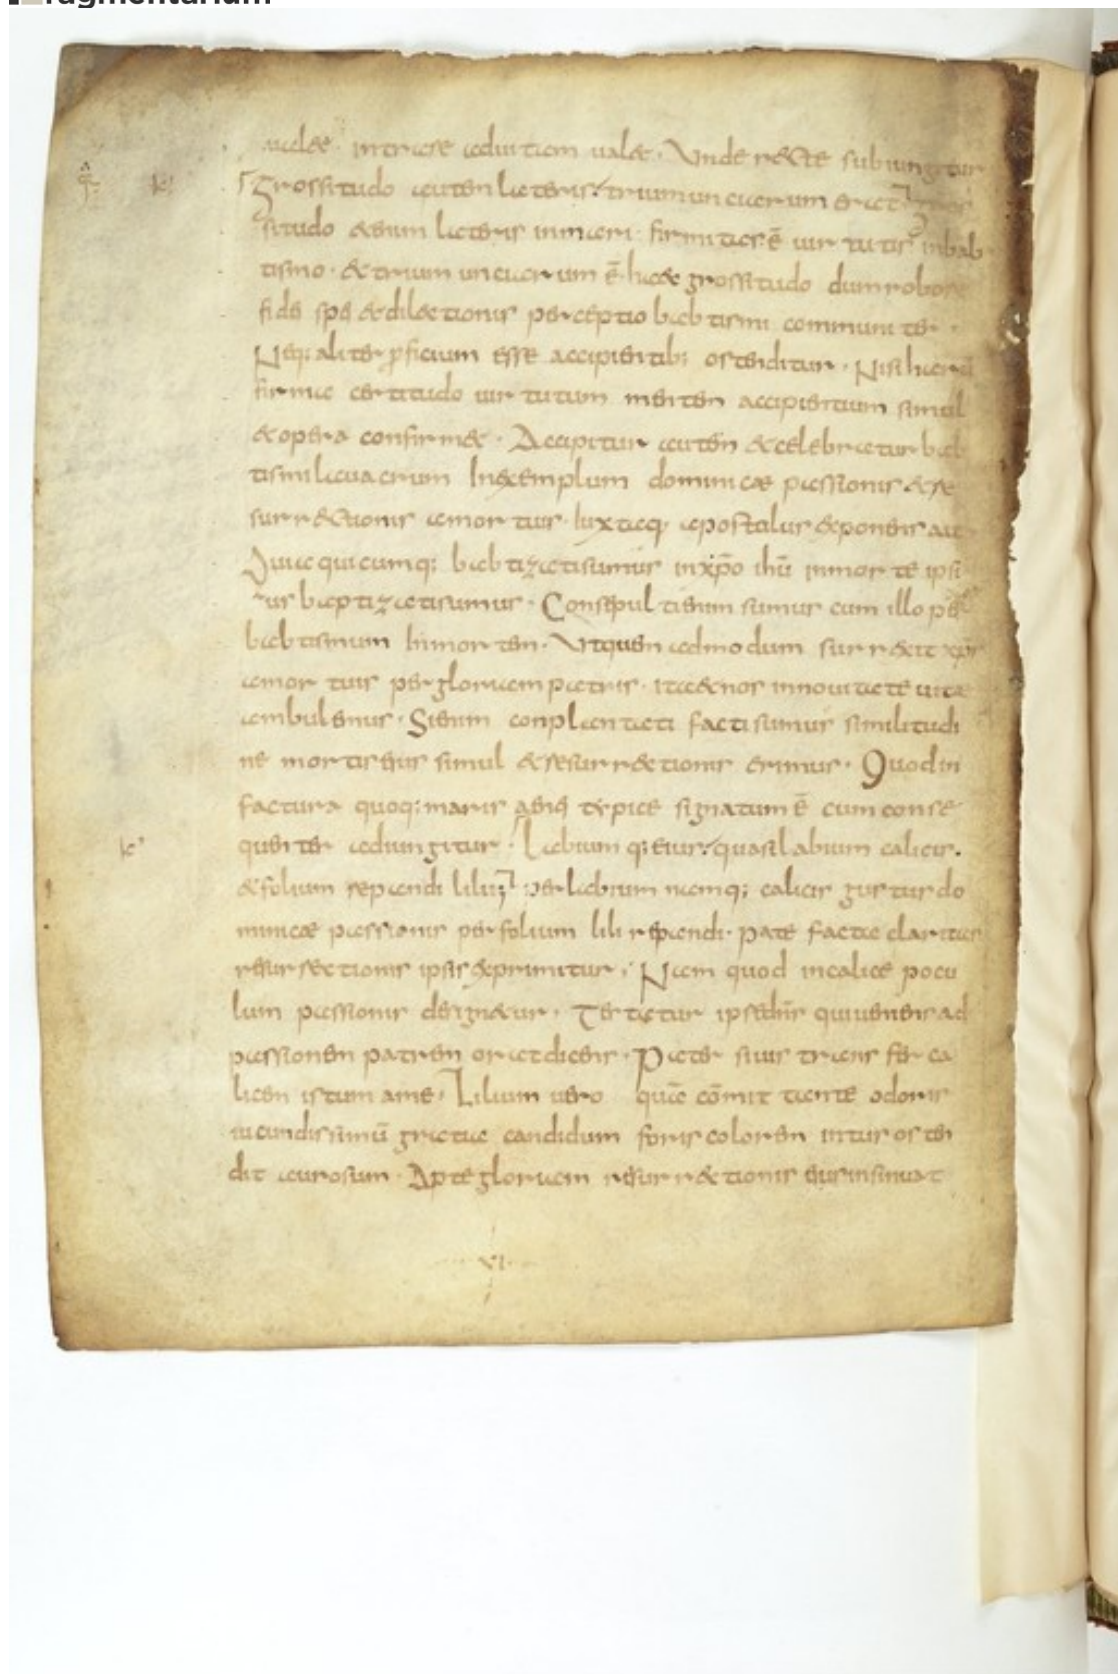 ragmentarium
intrare ad uitam ualet. Unde recte subiungitur
k
Grossitudo autem luteris. trium unciarum erat
situdo etenim luteris in mari. firmitas ē uirtutis in bab
tismo. et trium unciarum ē haec grossitudo dum robore
fidei spei et dilectionis perceptio babtismi communiter.
Neq; aliter ꝓficium esse accipientib; ostenditur. Nisi hic
firma certitudo uirtutum mentem accipientium simul
et opera confirmet. Accipitur autem et celebratur bab
tismi lauacrum In exemplum dominicae passionis et re
surrectionis a mortuis. Iuxta q; apostolus exponens ait
quicumq; babtizati sumus in xp̄o ihū in morte ipsi
us baptizati sumus. Consepulti enim sumus cum illo per
babtismum in mortem. Ut quem admodum surrexit xp̄s
a mortuis per gloriam patris. ita et nos in nouitate uitae
ambulemus. Si enim conplantati facti sumus similitudi
ne mortis eius simul et resurrectionis erimus. Quod in
factura quoq; maris aenei typice signatum ē cum conse
k
quenter adiungitur. Labium q; eius. quasi labium calicis.
et folium repandi lilii; per labium namq; calicis gustus do
minicae passionis per folium lili repandi. patefacta claritas
resurrectionis ipsis exprimitur. Nam quod in calice pocu
lum passionis designetur. Testatur ipse dn̄s qui ueniens ad
passionem patrem orat dicens. Pater si uis transfer ca
licem istum a me. Lilium uero quā cōmitante odoris
iucundissimū gratia candidum foris colorem intus osten
dit aurosum. Apte gloriam resurrectionis eius insinuat
VI